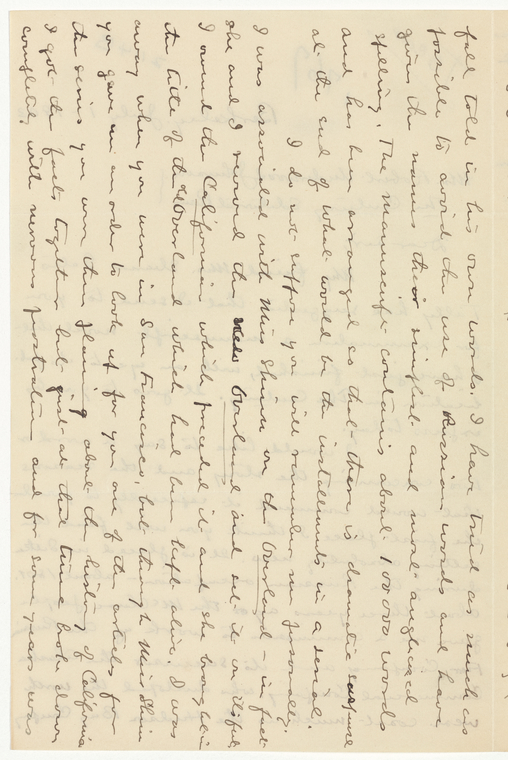 full told in his own words. I have tried as much as
possible to avoid the use of Russian words and have
given the names their simplest and most anglicized
spelling. The manuscript contains about 100 000 words
and has been arranged so that there is dramatic suspense
at the end of what would be the installments in a serial.
I do not suppose you will remember me personally.
I was associated with Miss Shinn on the Overland – in fact
she and I revived the Overland and set it on its feet.
I owned the Californian which preceded it and she brought in
the title of the Overland which had been kept alive. I was
away when you were in San Francisco, but through Miss Shinn
you gave me an order to look up for you one of the articles for
the series you were then planning about the history of California
I got the facts together but just at that time broke down
completely with nervous prostration and for some years was